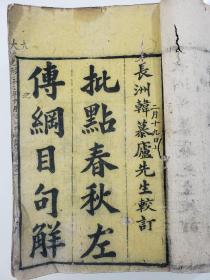 長洲韓慕廬先生較訂
批點春秋左
傳綱目句解
二月十九日